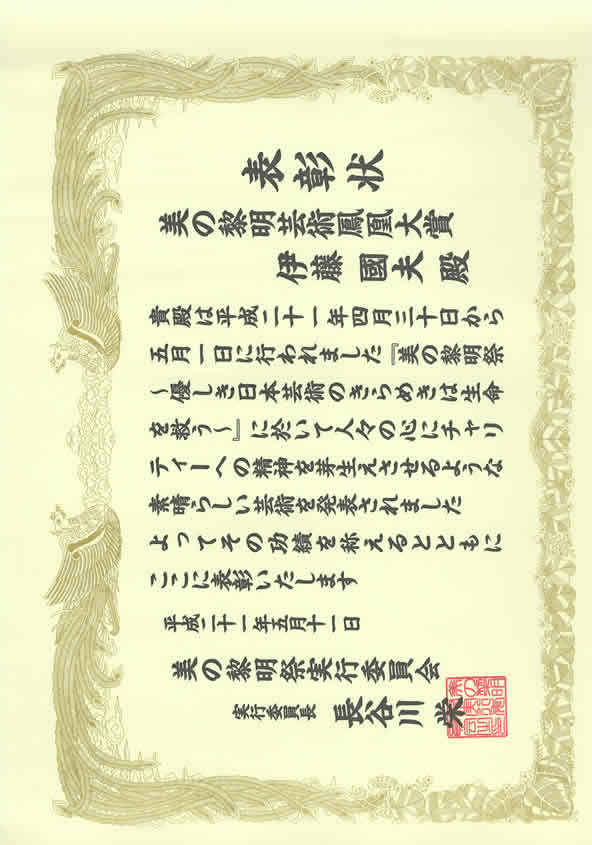 表彰状
美の黎明芸術鳳凰大賞
伊藤 國夫 殿
貴殿は平成二十一年四月三十日から
五月一日に行われました『美の黎明祭
〜優しき日本芸術のきらめきは生命
を救う〜』に於いて人々の心にチャリ
ティーへの精神を芽生えさせるような
素晴らしい芸術を発表されました
よってその功績を称えるとともに
ここに表彰いたします
平成二十一年五月十一日
美の黎明祭実行委員会
実行委員長 長谷川 栄